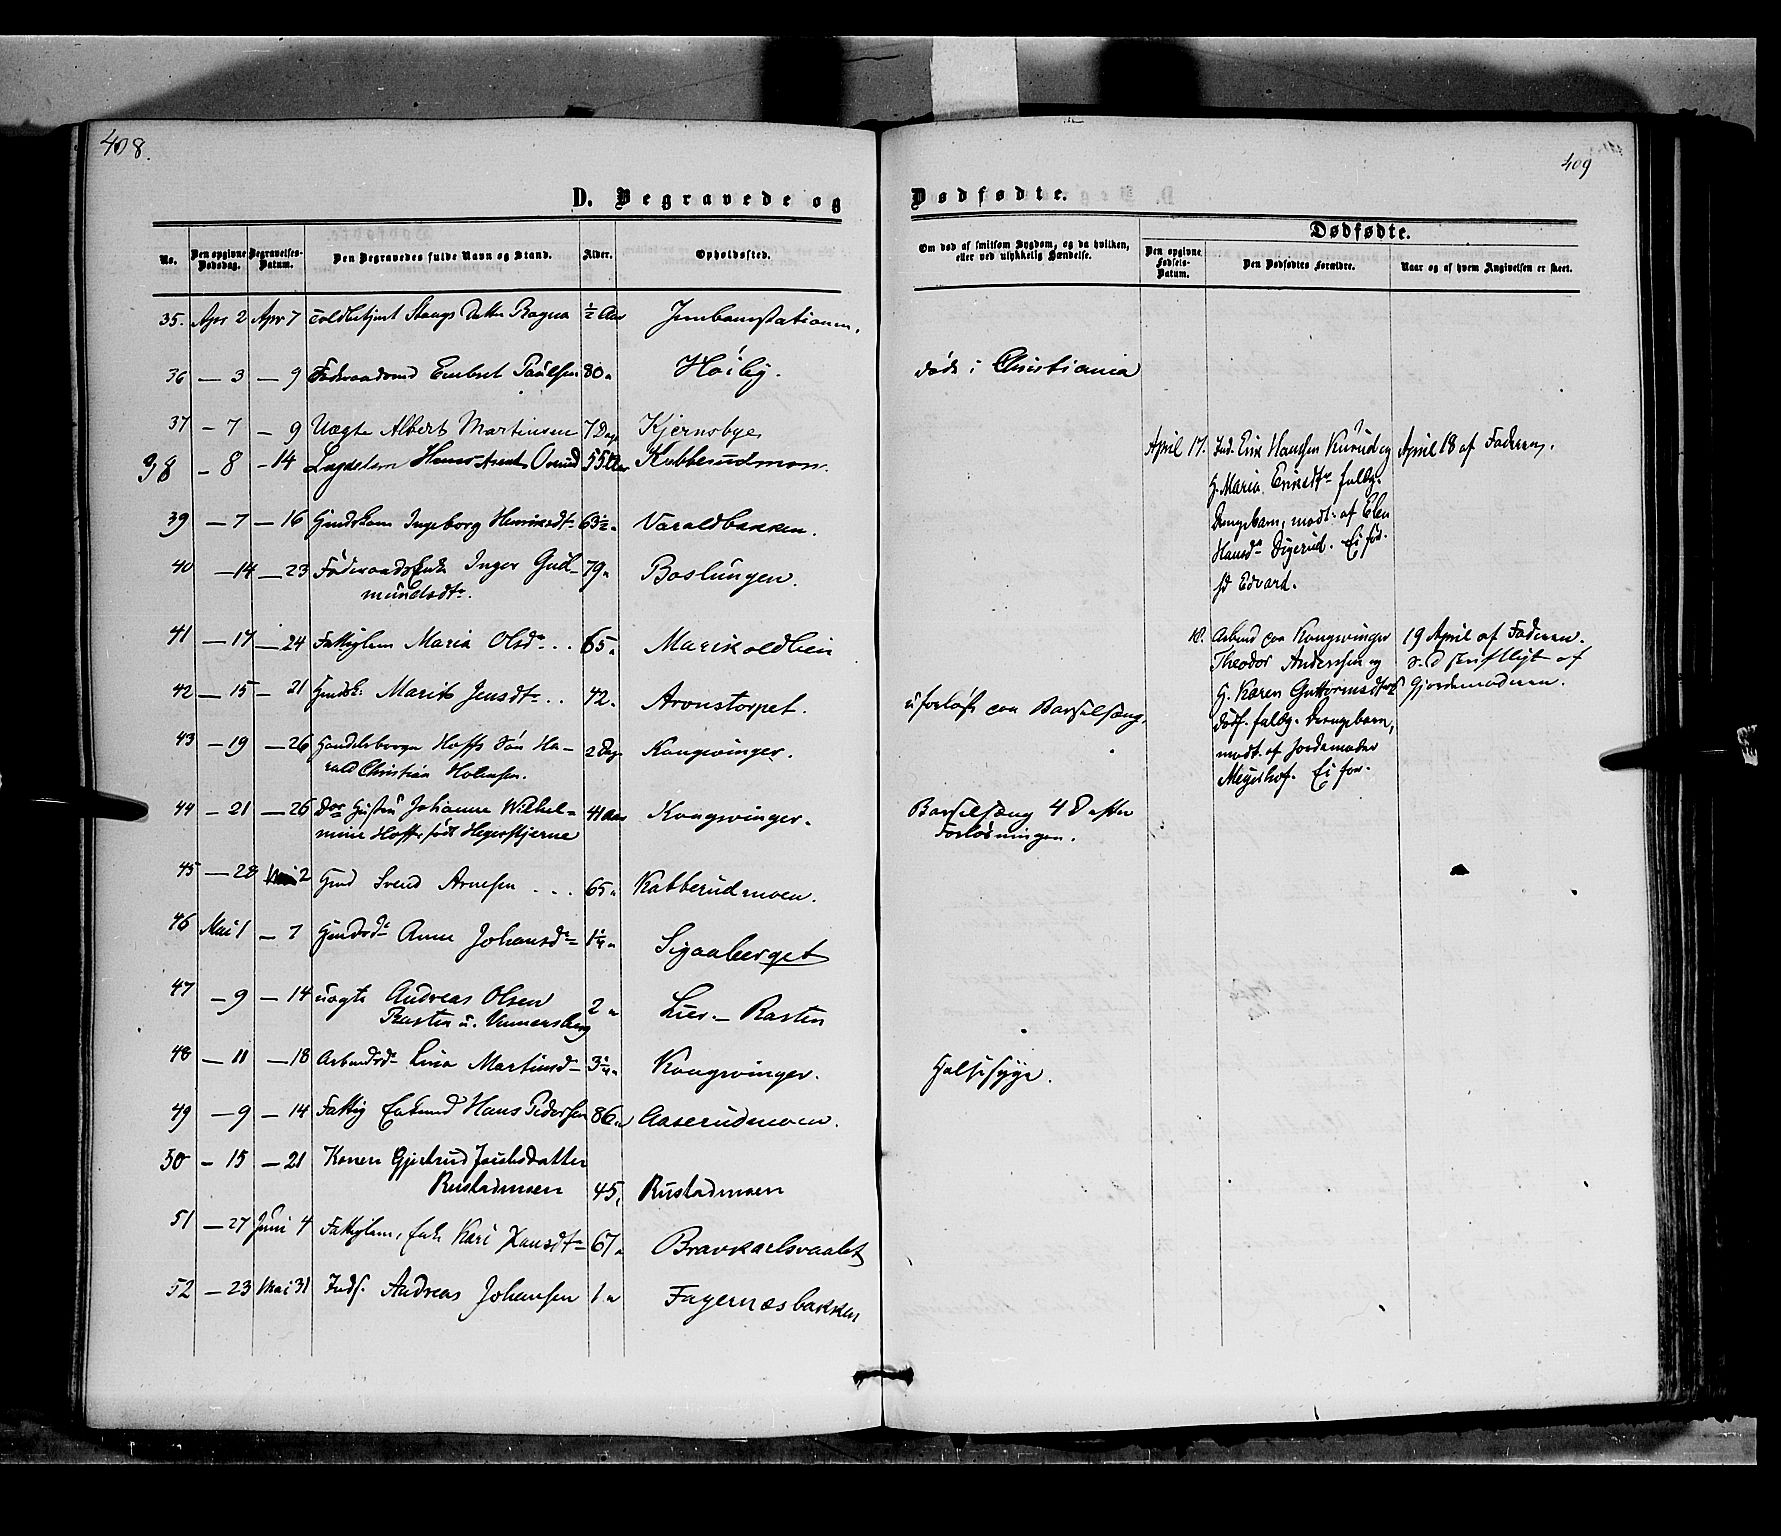 408.
409
D. Begravede og
Dødfødte.
No.
Den opgivne Dødsdag.
Begravelses-Datum.
Den Begravedes fulde Navn og Stand.
Alder.
Opholdssted.
Om død af smitsom Sygdom, og da hvilken, eller ved ulykkelig Hændelse.
Dødfødte.
Den opgivne Fødsels-Datum.
Den Dødfødtes Forældre.
Naar og af hvem Angivelsen er skeet.
35. Apr 2 Apr 7 Datter Ragna ½ Aar Jernbanestationen.
36 — 3 — 9 Føderaadsmd Embret Paulsen 80 " Høiby. døde i Christiania
37 — 7 — 9 Uægte Albert Martinsen 7 Dage Kjernsbye
38 — 8 — 14 Lægdslem 55 Aar Kabberudmoen.
39 — 7 — 16 Gmdskone Ingeborg Henriksdtr 63½ " Varaldbakken.
40 — 14 — 23 Føderaadsenke Inger Gud-
mundsdtr. 79 " Baslungen.
41 — 17 — 24 Fattiglem Maria Olsdr . . 65 " Marikoldlien
42 — 15 — 21 Gmdsk: Marith Jensdtr . . 42. Aronstorpet. uforløst paa Barselseng.
43 — 19 — 26 Handelsborger Hoffs Søn Ha-
rald Christian 2 Dage Kongsvinger.
44 — 21 — 26 Do Hustru Johanne Wilhel-
mine Hoff født Hegerstjerne 41 Aar Kongsvinger. Barselseng 4 D efter
Forløsningen.
45 — 28 Mai 2 Gmd Svend Arnesen . . . 65 " Kabberudmoen.
46 Mai 1 — 7 Gmdsdr Anne Johansdr 1¼ " Sigaaberget
47 — 9 — 14 uægte Andreas Olsen
Rasten u. Vennersberg 2 " Lier - Rasten
48 — 11 — 18 Arbmdsdr Lina Martinsd 3¼ " Kongsvinger. Halssyge.
49 — 9 — 14 Fattig Enkemd Hans Pedersen 86 " Aaserudmoen.
50 — 15 — 21 Konen Gjertrud Jacobsdatter
Rustadmoen 45 " Rustadmoen
51 — 27 Juni 4 Fattiglem, Enke Kari Hansdtr 67 " Bravkarlsvaalet
52 — 23 Mai 31 Inds. Andreas Johansen 1 " Fagernæsbakken
April 17. Ind. Erik Hansen Rurud og
H. Maria Eriksdtr fuldb.
Drengebarn, modt: af Elen
Hansdr Digerud. Ei før-
st Edvard.
April 18 af Faderen.
18. Arbmd paa Kongsvinger
Theodor Andersen og
H. Karen Guttormsdtr
dødf. fuldb. Drengebarn,
modt. af Jordemoder
Meyerhof. Ei for-
19 April af Faderen.
s. d. skriftligt af
Gjordemoderen.